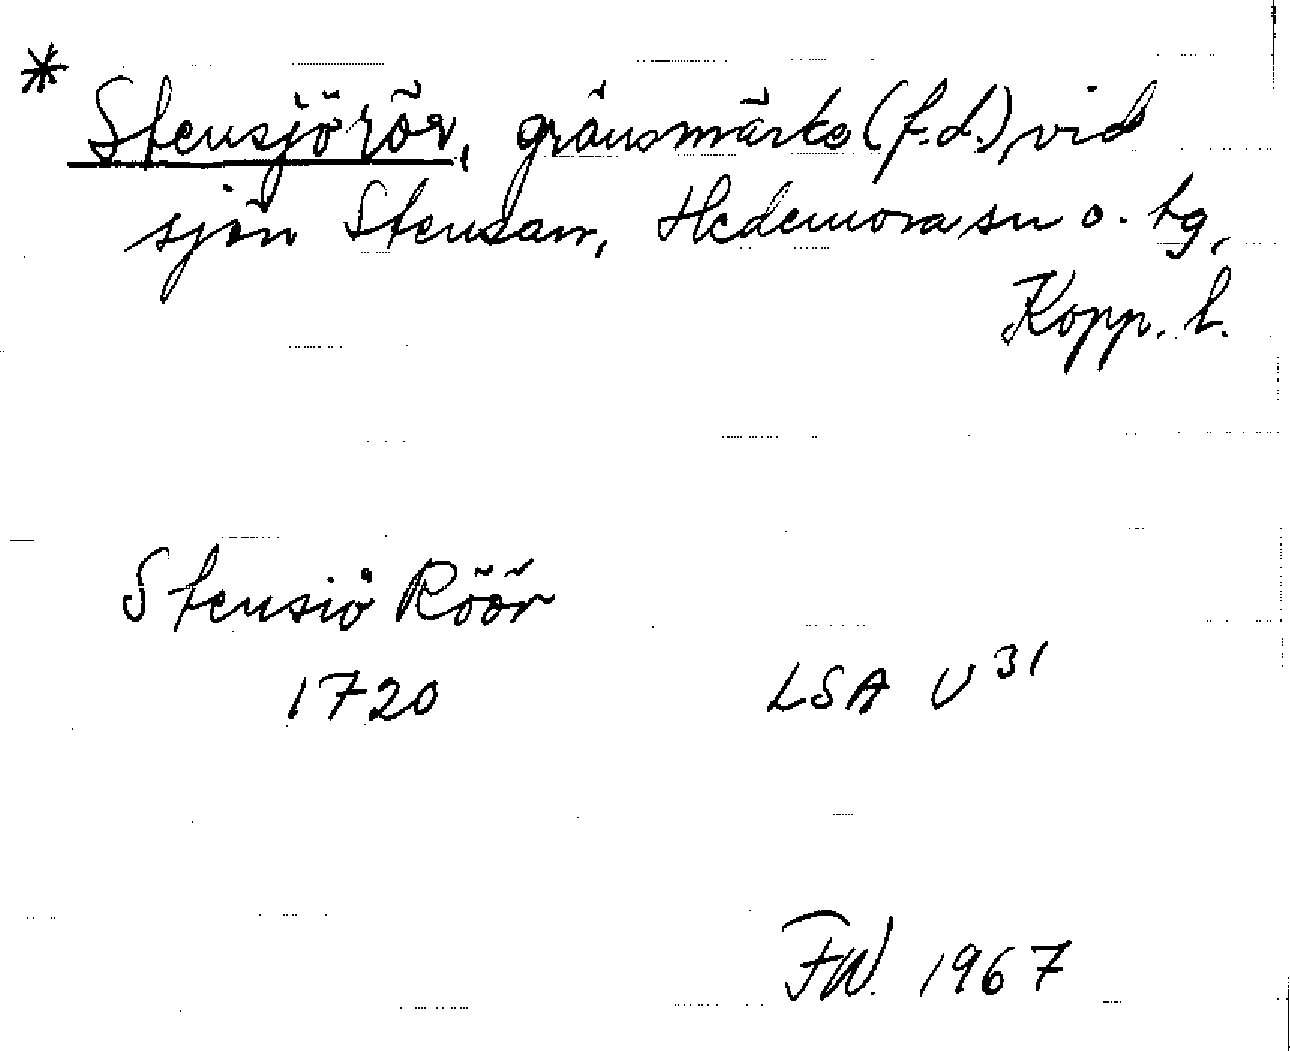 * Stensjörör, gränsmärke (f.d.) vid
sjön Stensan, Hedemora sn o. tg,
Kopp. l.
Stensiö Röör
1720 LSA U 31
FW. 1967